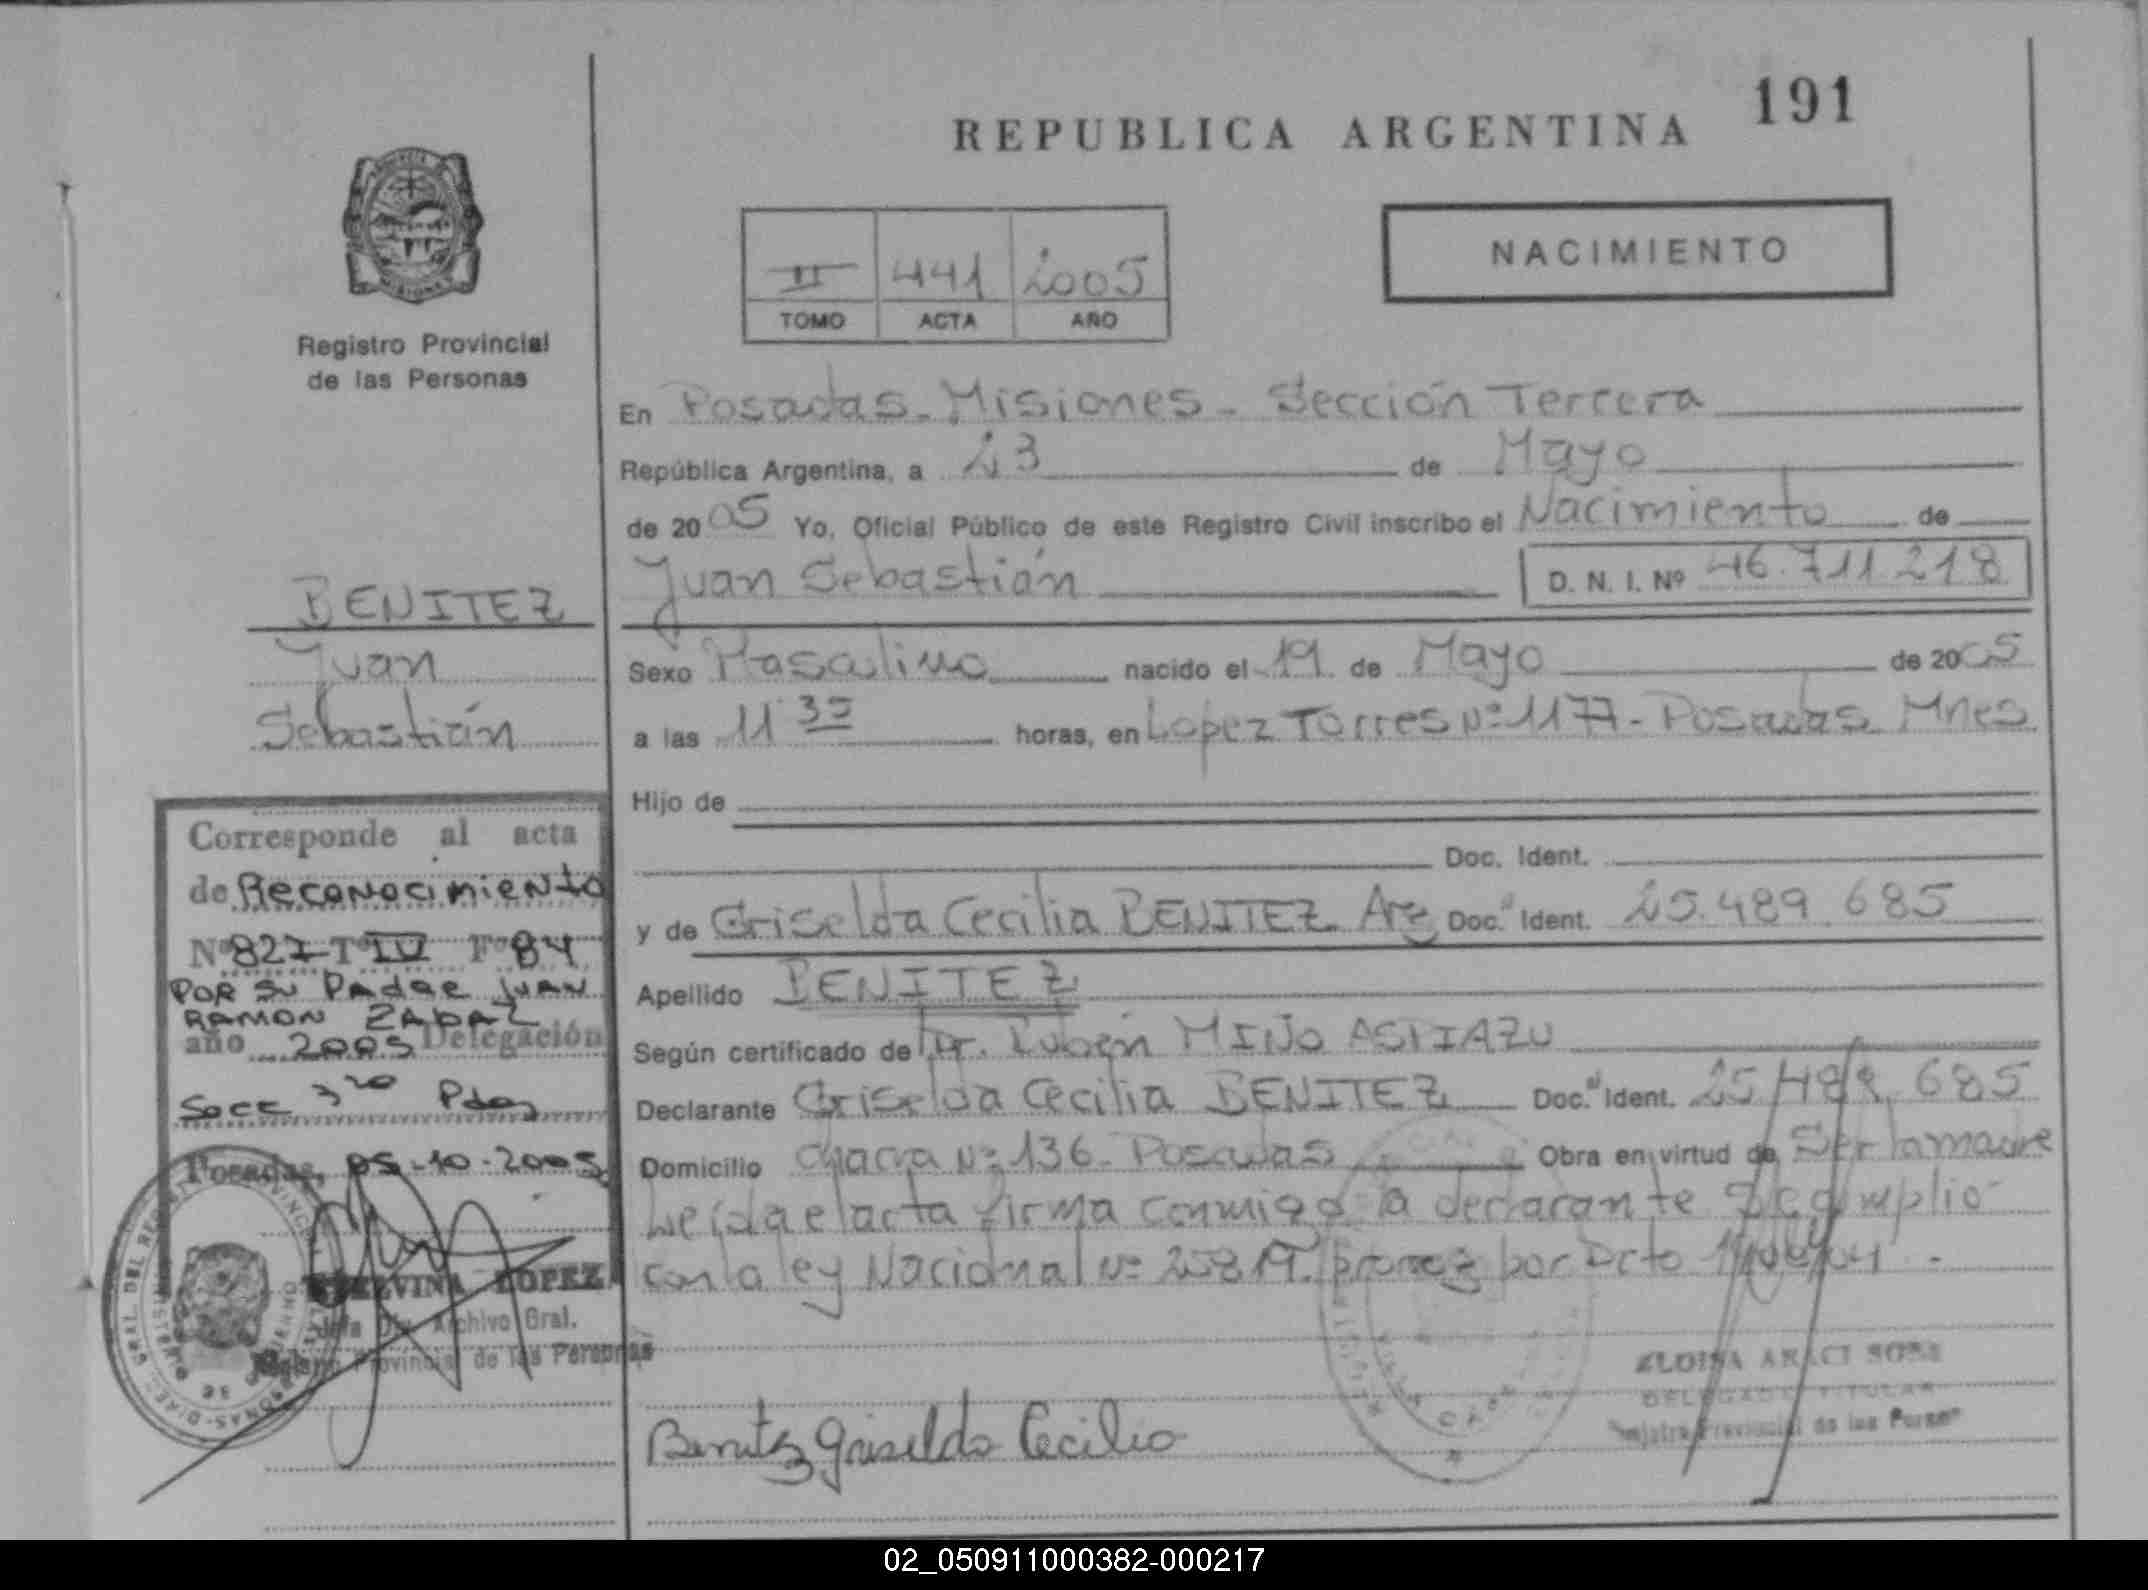 191
REPUBLICA ARGENTINA
NACIMIENTO
II 441 2005
TOMO ACTA AÑO
Registro Provincial
de las Personas
En Posadas - Misiones - Sección Tercera
República Argentina, a 23 de Mayo
de 2005 Yo, Oficial Público de este Registro Civil inscribo el Nacimiento de
Juan Sebastián D. N. I. Nº 46.711.218
Sexo Masculino nacido el 19 de Mayo de 2005
a las 11 35 horas, en Lopez Torres Nº 1177 - Posadas Mnes
Hijo de
Doc. Ident.
y de Griselda Cecilia BENITEZ Arg Doc. Ident. 25.489.685
Apellido BENITEZ
Según certificado de Dr. Rubén MIÑO ASPIAZU
Declarante Griselda Cecilia BENITEZ Doc. Ident. 25.489.685
Domicilio Chacra Nº 136 - Posadas Obra en virtud de Ser la madre
Leída el acta firma conmigo la declarante Se cumplió
con la ley Nacional Nº 25819 por Dcto
Benitez Griselda Cecilia
ELOISA ARACI SOSA
DELEGADA TITULAR
Registro Provincial de las Personas
BENITEZ
Juan
Sebastián
Corresponde al acta
de Reconocimiento
Nº 827 Tº IV Fº 84
POR SU PADRE JUAN
RAMON ZABAL
año 2005 Delegación
Secc 3ra Pdas
Posadas, 05-10-2005
LOPEZ
Archivo Gral.
Provincial de las Personas
02_050911000382-000217